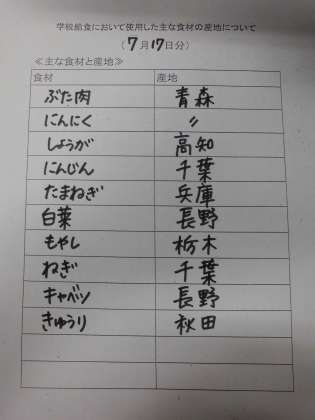 学校給食において使用した主な食材の産地について
(7月17日分)
≪主な食材と産地≫
食材 産地
ぶた肉 青森
にんにく 〃
しょうが 高知
にんじん 千葉
たまねぎ 兵庫
白菜 長野
もやし 栃木
ねぎ 千葉
キャベツ 長野
きゅうり 秋田